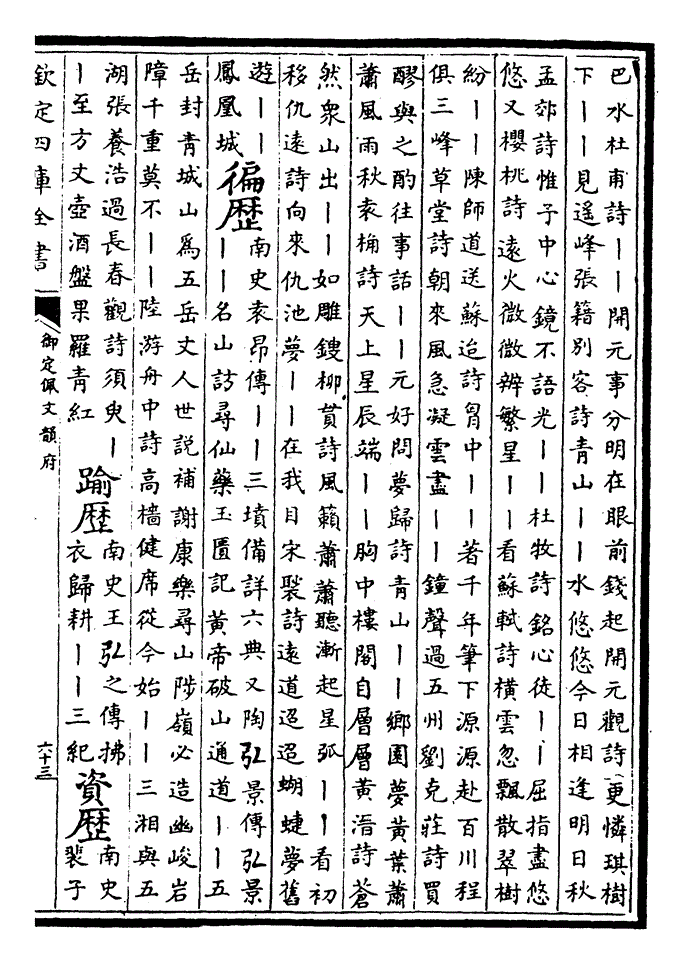 巴水杜甫詩丨丨開元事分明在眼前錢起開元觀詩更憐琪樹
下丨丨見遥峰張籍别客詩青山丨丨水悠悠今日相逢明日秋
孟郊詩惟子中心鏡不語光丨丨杜牧詩銘心徒丨丨屈指盡悠
悠又櫻桃詩遠火微微辨繁星丨丨看蘇軾詩横雲忽飄散翠樹
紛丨丨陳師道送蘇迨詩胷中丨丨著千年筆下源源赴百川程
俱三峰草堂詩朝來風急凝雲盡丨丨鐘聲過五州劉克莊詩買
醪與之酌往事話丨丨元好問夢歸詩青山丨丨鄉園夢黄葉蕭
蕭風雨秋袁桷詩天上星辰端丨丨胸中樓閣自層層黄溍詩蒼
然衆山出丨丨如雕鎪柳貫詩風籟蕭蕭聽漸起星弧丨丨看初
移仇遠詩向來仇池夢丨丨在我目宋褧詩遠道迢迢蝴蜨夢舊
遊丨丨鳳凰城
徧歴
南史袁昂傳丨丨三墳備詳六典又陶弘景傳弘景
丨丨名山訪尋仙藥玉匱記黄帝破山通道丨丨五
岳封青城山爲五岳丈人世説補謝康樂尋山陟嶺必造幽峻岩
障千重莫不丨丨陸游舟中詩高檣健席從今始丨丨三湘與五
湖張養浩過長春觀詩須臾丨
丨至方丈壺酒盤果羅青紅
踰歴
南史王弘之傳拂
衣歸耕丨丨三紀
資歴
南史
裴子
欽定四庫全書
御定佩文韻府
六十三